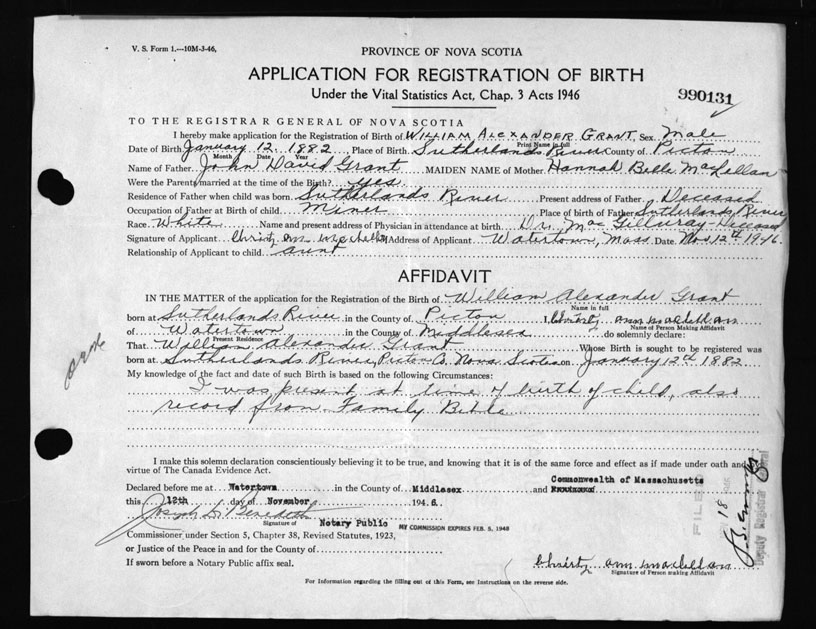 V. S. Form 1.—10M-3-46,
PROVINCE OF NOVA SCOTIA
APPLICATION FOR REGISTRATION OF BIRTH
Under the Vital Statistics Act, Chap. 3 Acts 1946
990131
TO THE REGISTRAR GENERAL OF NOVA SCOTIA
I hereby make application for the Registration of Birth of WILLIAM ALEXANDER GRANT, Sex Male
Print Name in full
Date of Birth January 12, 1882 Place of Birth Sutherlands River County of Pictou
Month Date Year
Name of Father John David Grant MAIDEN NAME of Mother Hannah Belle MacLellan
Were the Parents married at the time of the Birth? yes
Residence of Father when child was born Sutherlands River Present address of Father Deceased
Occupation of Father at Birth of child Miner Place of birth of Father Sutherlands River
Race White Name and present address of Physician in attendance at birth Dr. MacGillvray Deceased
Signature of Applicant Christy Ann MacLellan Address of Applicant Watertown, Mass. Date Nov. 12th 1946.
Relationship of Applicant to child aunt
AFFIDAVIT
IN THE MATTER of the application for the Registration of the Birth of William Alexander Grant
Name in full
born at Sutherlands River in the County of Pictou I, Christy Ann MacLellan
Name of Person Making Affidavit
of Watertown in the County of Middlesex do solemnly declare:
Present Residence
That William Alexander Grant Whose Birth is sought to be registered was
born at Sutherlands River, Pictou Co, Nova Scotia on January 12th 1882
My knowledge of the fact and date of such Birth is based on the following Circumstances:
I was present at time of birth of child, also
record from Family Bible
I make this solemn declaration conscientiously believing it to be true, and knowing that it is of the same force and effect as if made under oath and
virtue of The Canada Evidence Act.
Commonwealth of Massachusetts
Declared before me at Watertown in the County of Middlesex and
this 12th day of November 1946.
Signature of Notary Public MY COMMISSION EXPIRES FEB. 5, 1948
Commissioner under Section 5, Chapter 38, Revised Statutes, 1923,
or Justice of the Peace in and for the County of
If sworn before a Notary Public affix seal.
Christy Ann MacLellan
Signature of Person making Affidavit
For Information regarding the filling out of this Form, see Instructions on the reverse side.
FILED
18
Deputy Registrar